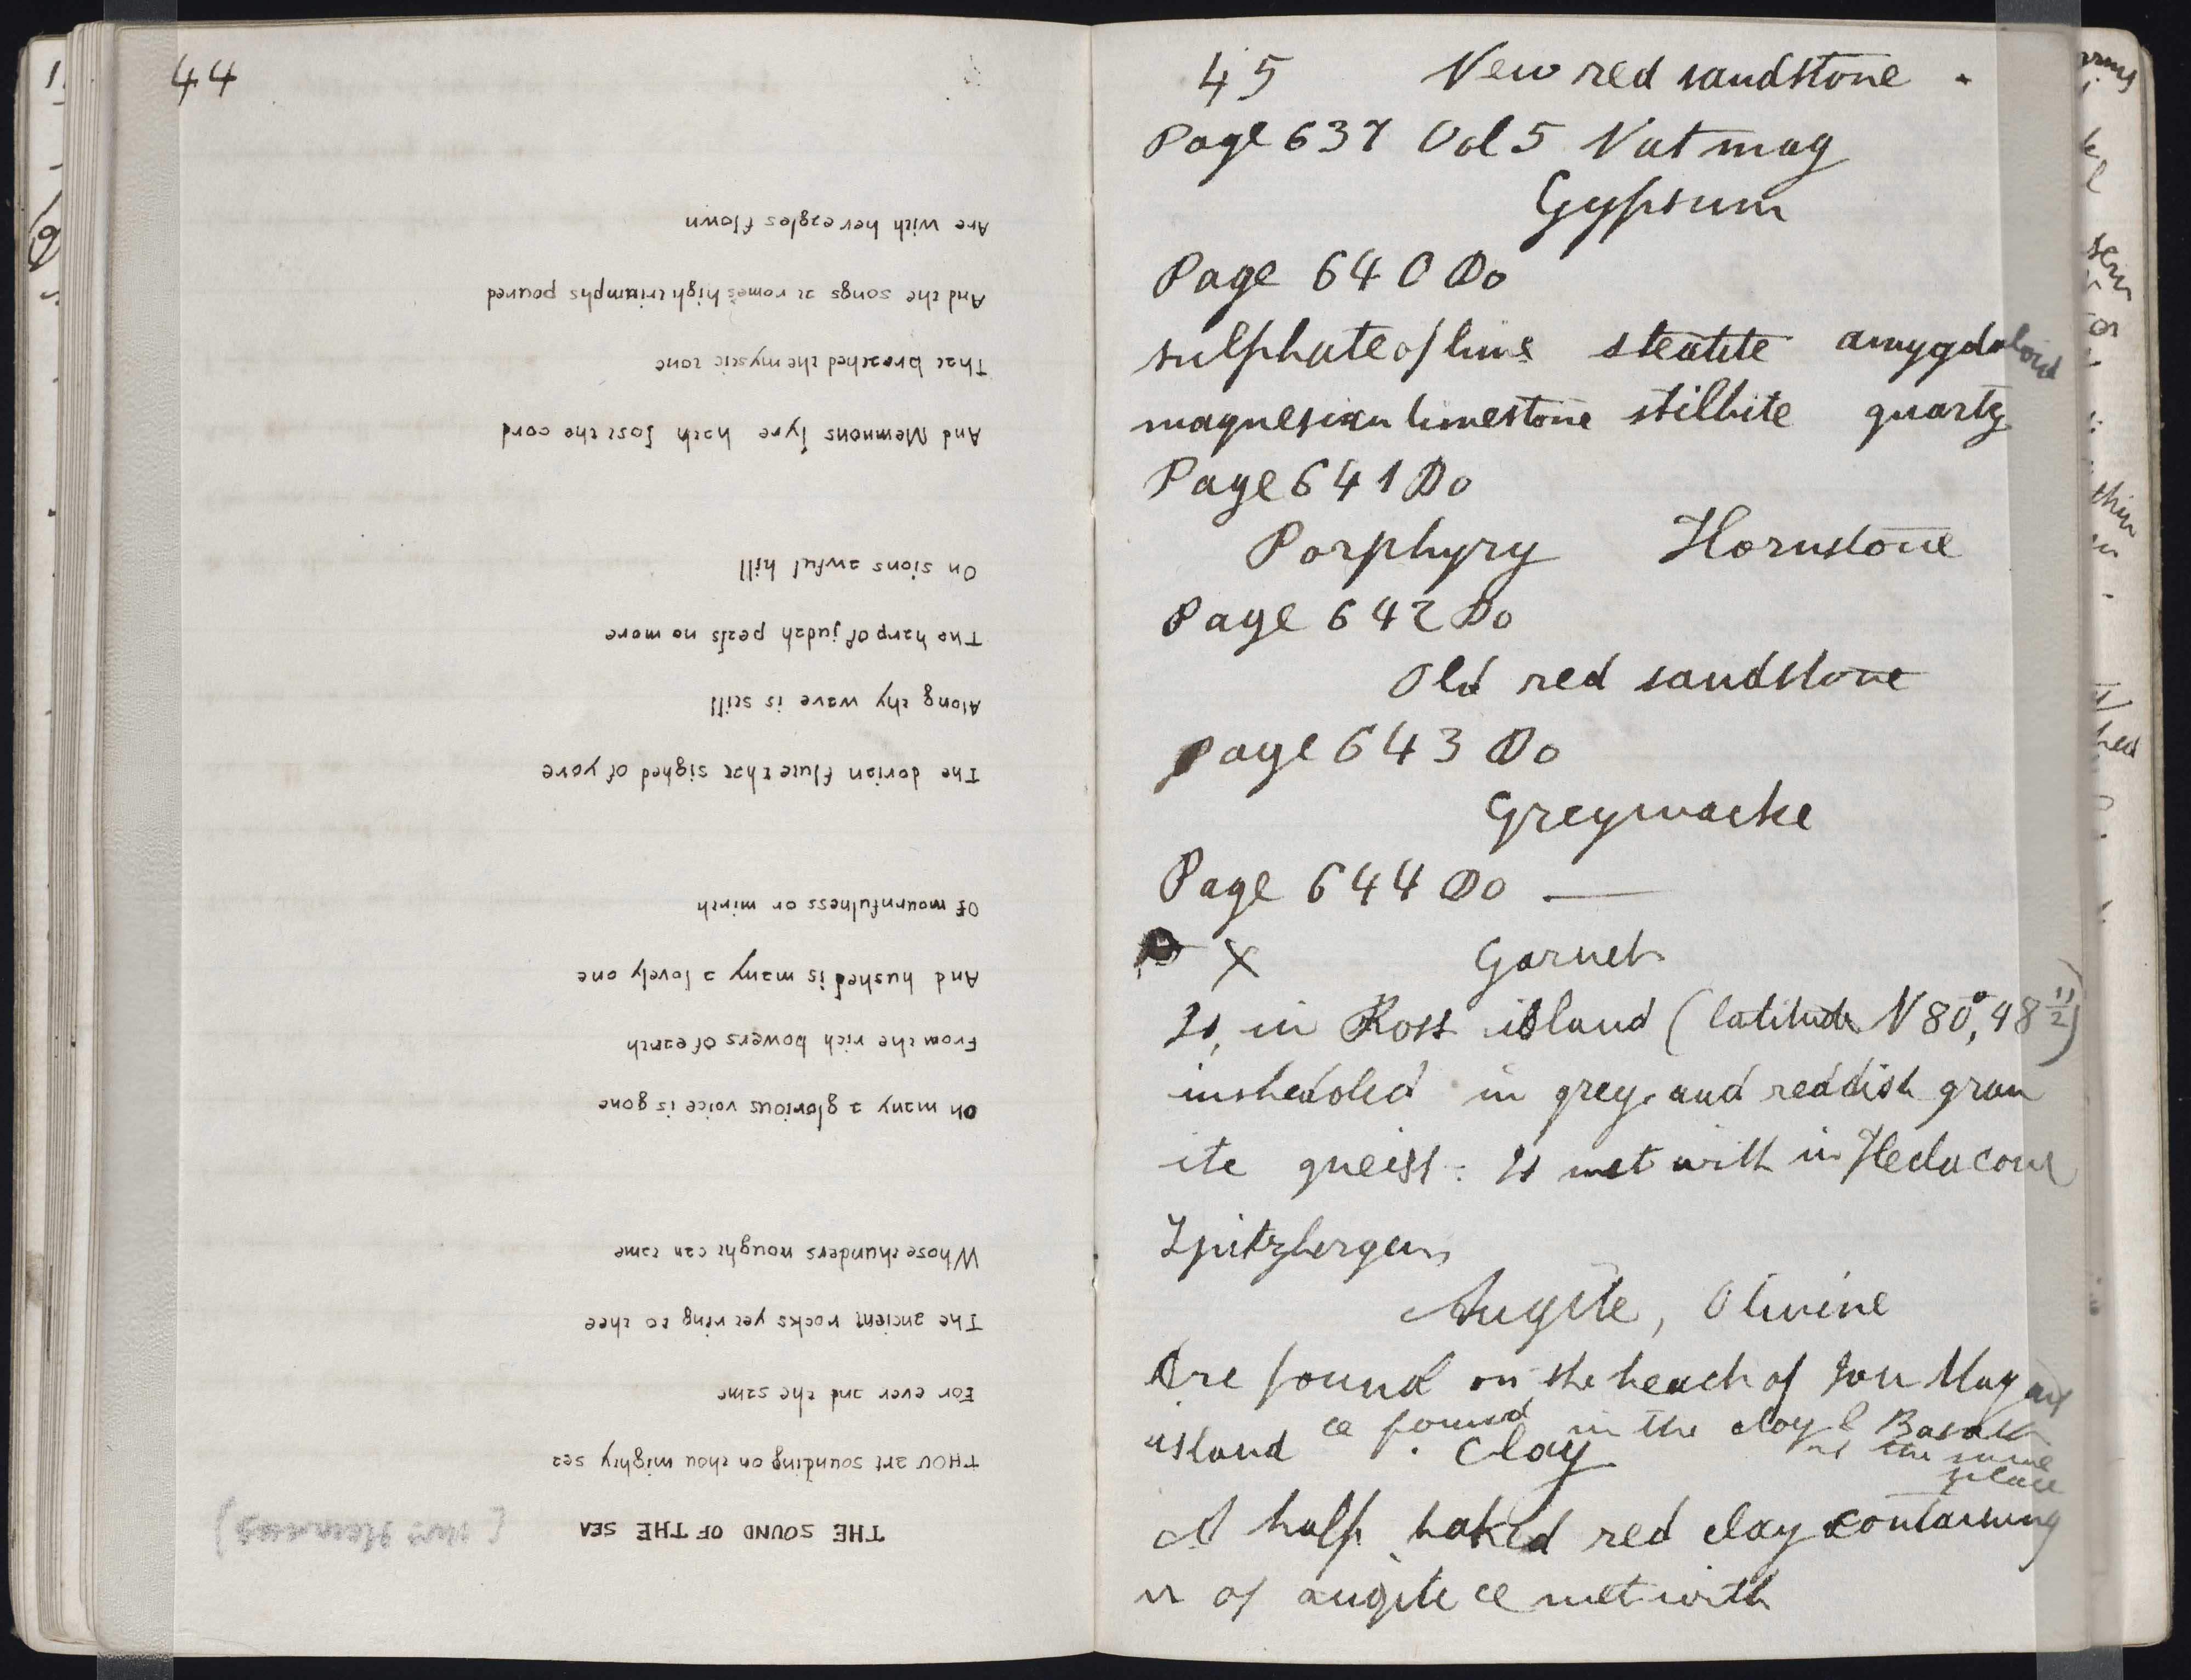 44
THE SOUND OF THE SEA (Mrs Hemans)
THOU art sounding on thou mighty sea
For ever and the same
The ancient rocks yet ring to thee
Whose thunders nought can tame
Oh many a glorious voice is gone
From the rich bowers of earth
And hushed is many a lovely one
Of mournfulness or mirth
The dorian flute that sighed of yore
Along thy wave is still
The harp of judah peals no more
On sions awful hill
And Memnons lyre hath lost the cord
That breathed the mystic tone
And the songs at romes high triumphs poured
Are with her eagles flown
45 New red sandstone .
Page 637 Vol 5 Nat mag
Gypsum
Page 640 Do
sulphate of lime steatite amygdaloid
magnesian limestone stilbite quartz
Page 641 Do
Porphyry Hornstone
Page 642 Do
Old red sandstone
Page 643 Do
Greywacke
Page 644 Do —
X Garnet
Is, in Ross island (latitude N 80°, 48 11/2)
in grey and reddish gran
ite gneiss: Is met with in Hecla cove
Spitzbergen
Augite, Olivine
Are found on the beach of Jan Mayen
island found in the clay & Basalt
at the same
place
Clay
A half baked red clay containing
of augite met with